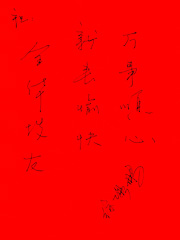 祝
全体校友
新春愉快
万事顺心